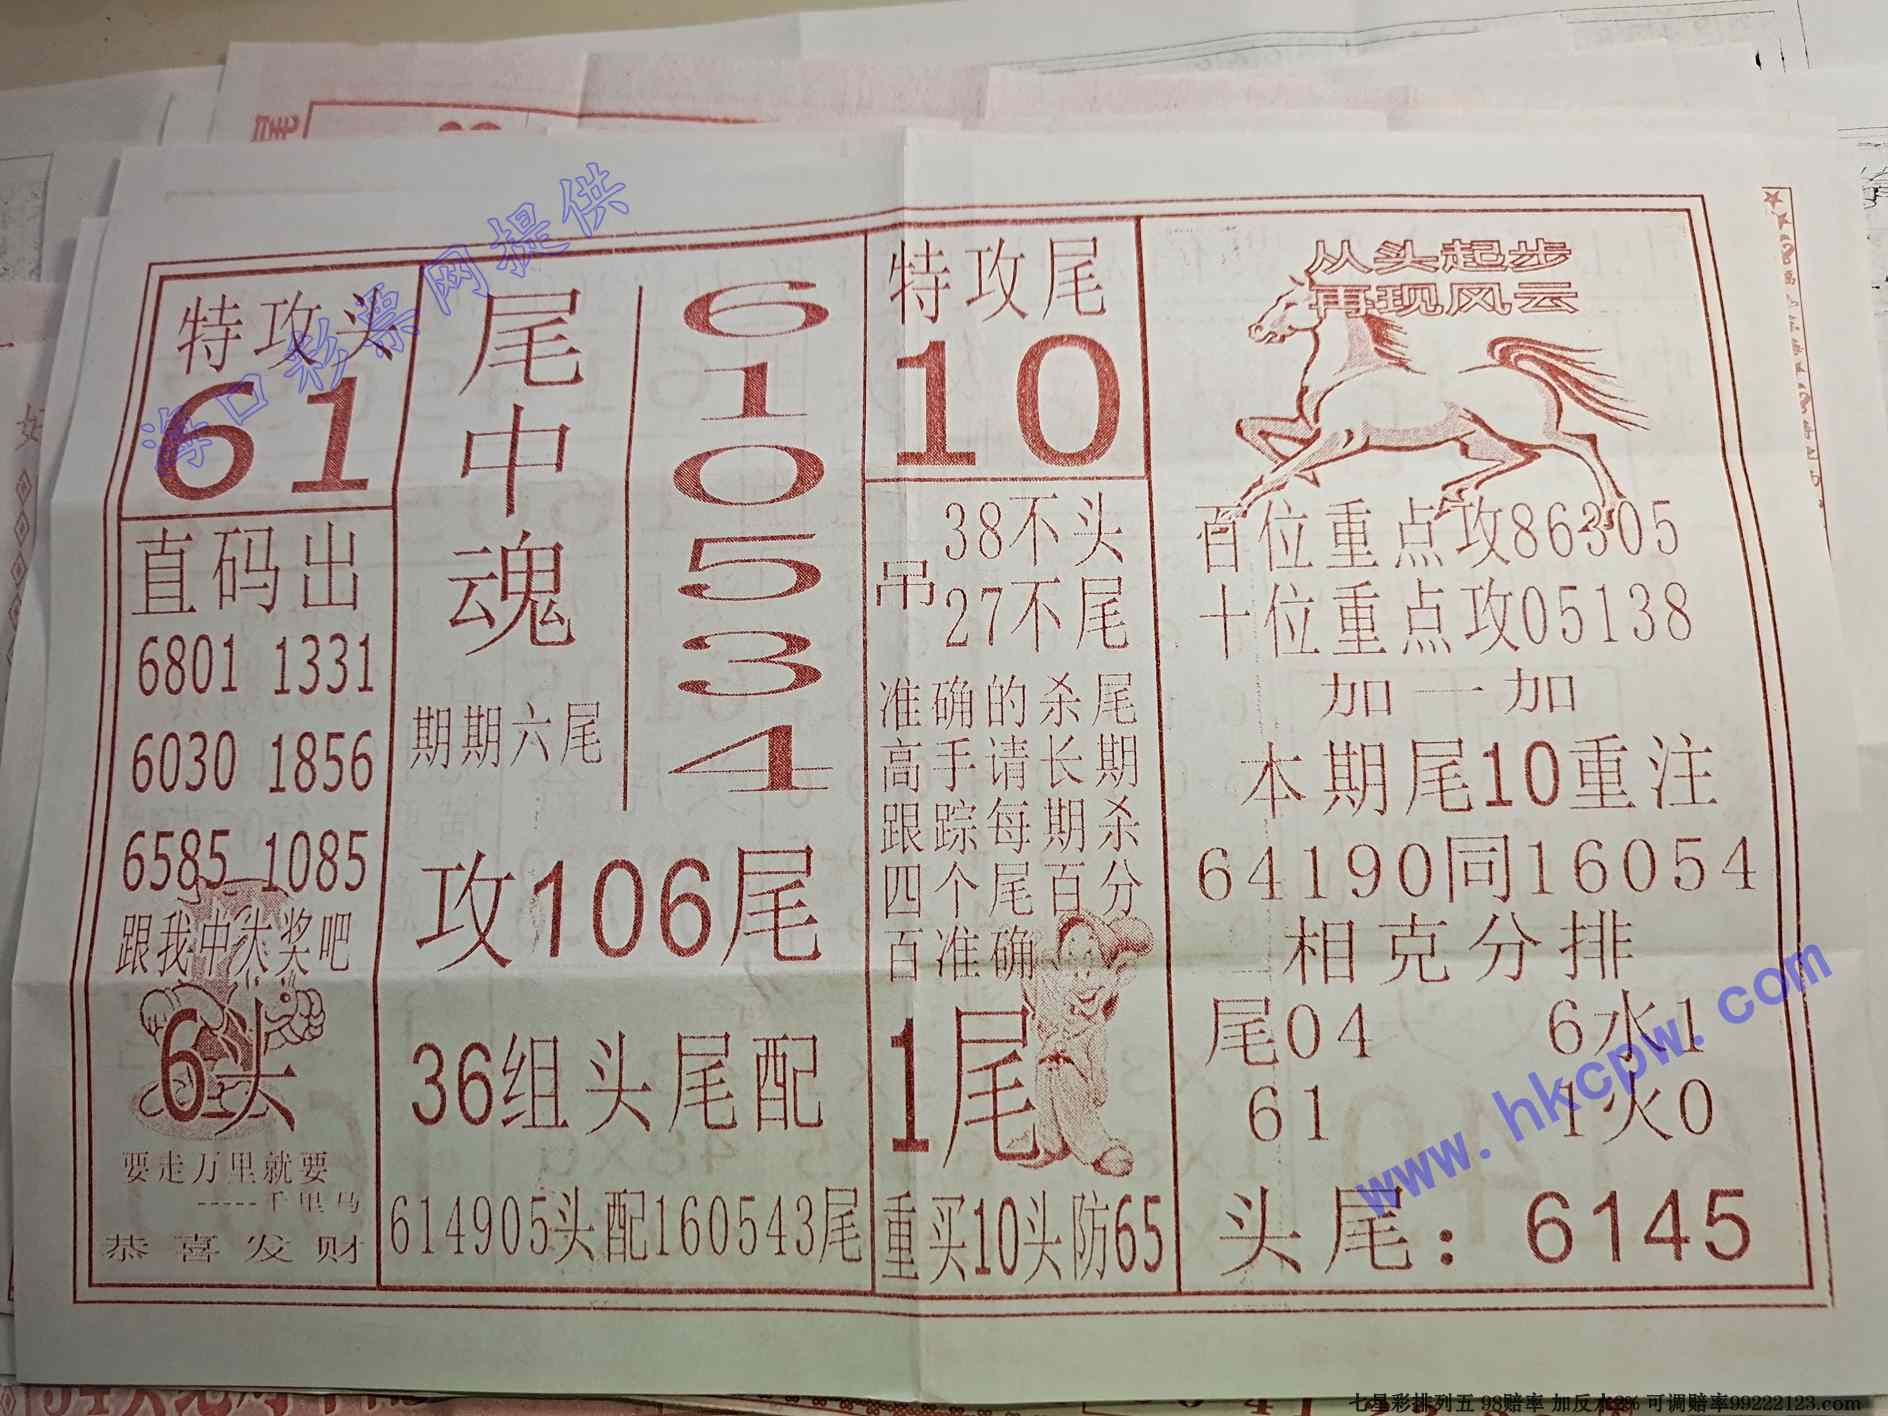 海口彩票网提供
特攻头
61
直码出
6801 1331
6030 1856
6585 1085
跟我中大奖吧
6头
要走万里就要
-----千里马
恭喜发财
尾中魂
期期六尾
6
1
0
5
3
4
攻106尾
36组头尾配
614905头配160543尾
特攻尾
10
吊
38不头
27不尾
准确的杀尾
高手请长期
跟踪每期杀
四个尾百分
百准确
1尾
重买10头防65
从头起步
再现风云
百位重点攻86305
十位重点攻05138
加一加
本期尾10重注
64190同16054
相克分排
尾04 6水1
61 1火0
头尾：6145
www.hkcpw.com
七星彩排列五 98赔率 加反水2% 可调赔率99222123.com